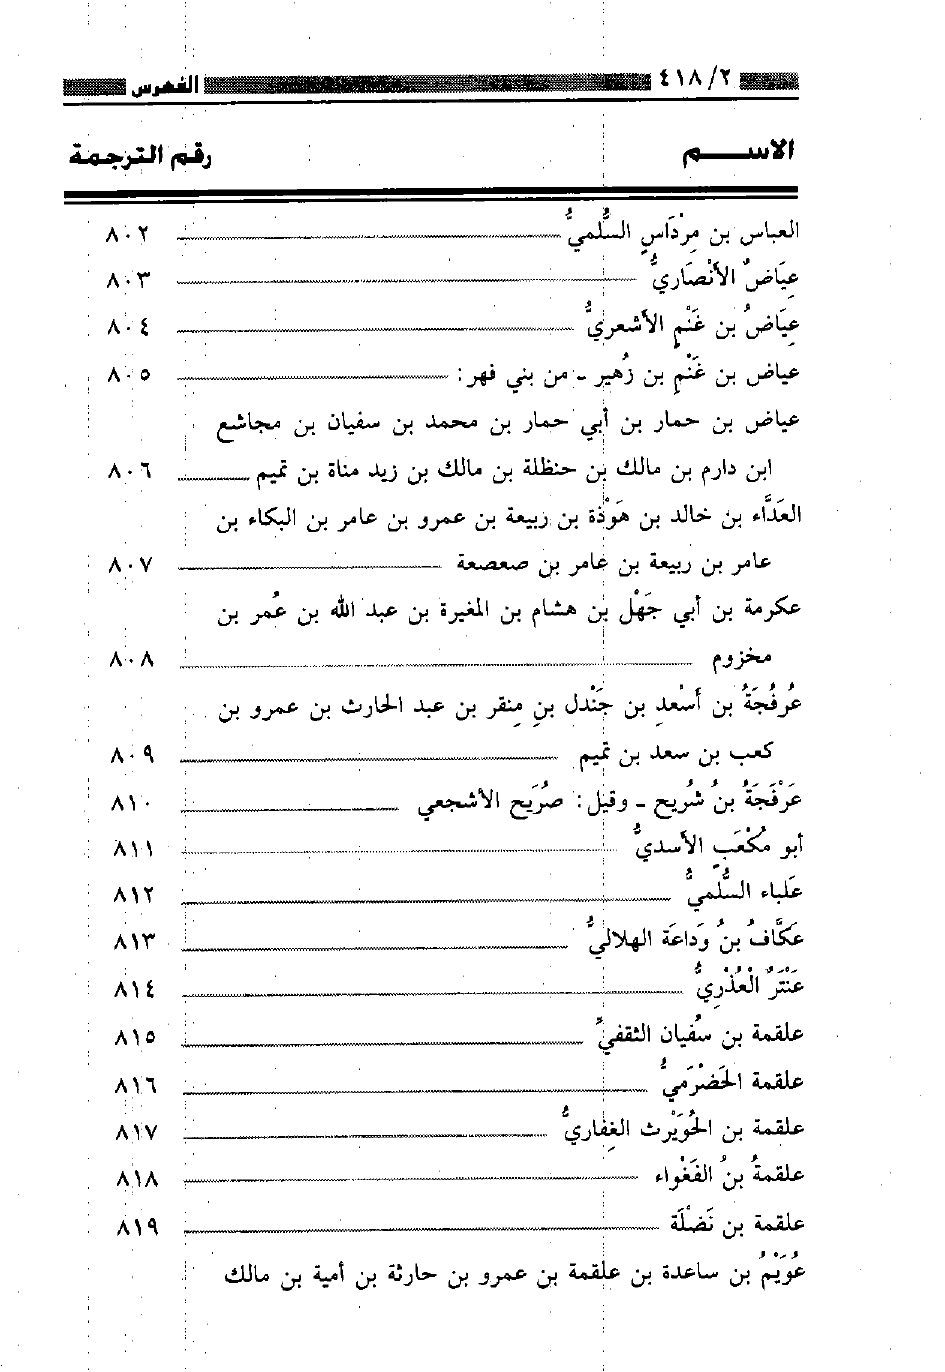 ٤١٨/٢ الفهرس
الاســـــم رقم الترجمة
العباس بن مِرْدَاسٍ السُّلميُّ ٨٠٢
عِيَاضٌ الأَنْصَاريُّ ٨٠٣
عِيَاضُ بن غَنْمٍ الأشعريُّ ٨٠٤
عياض بن غَنْمٍ بن زُهير - من بني فهر: ٨٠٥
عياض بن حمار بن أبي حمار بن محمد بن سفيان بن مجاشع
ابن دارم بن مالك بن حنظلة بن مالك بن زيد مناة بن تميم ٨٠٦
العَدَّاء بن خالد بن هَوْذة بن ربيعة بن عمرو بن عامر بن البكاء بن
عامر بن ربيعة بن عامر بن صعصعة ٨٠٧
عكرمة بن أبي جَهْل بن هشام بن المغيرة بن عبد الله بن عُمر بن
مخزوم ٨٠٨
عُرفُجَةُ بن أَسْعدِ بن جَنْدل بنِ مِنقر بن عبد الحارث بن عمرو بن
كعب بن سعد بن تميم ٨٠٩
عَرْفَجَةُ بنُ شُريح - وقيل: صُرَيح الأشجعي ٨١٠
أبو مُكْعَبٍ الأسديُّ ٨١١
عَلباء السُّلَميُّ ٨١٢
عَكَّافُ بنُ وَداعَة الهلاليُّ ٨١٣
عَنْتَرٌ الْعُذْرِيُّ ٨١٤
علقمة بن سُفيان الثقفيِّ ٨١٥
علقمة الحَضْرَميُّ ٨١٦
علقمة بن الحُوَيْرث الغِفاريُّ ٨١٧
علقمةُ بنُ الفَغْواء ٨١٨
علقمة بن نَضْلَة ٨١٩
عُوَيْمُ بن ساعدة بن علقمة بن عمرو بن حارثة بن أمية بن مالك